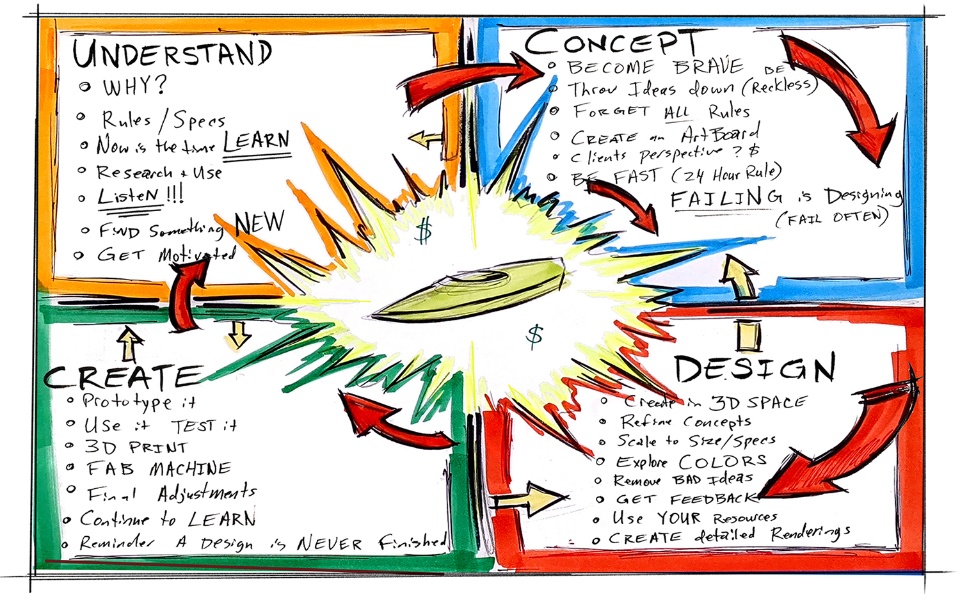 UNDERSTAND
WHY?
Rules/Specs
Now is the time LEARN
Research + Use
LISTEN!!!
FIND Something NEW
GET Motivated
CONCEPT
BECOME BRAVE
BE
Throw Ideas down (Reckless)
FORGET ALL Rules
CREATE an ArtBoard
Clients perspective? $
BE FAST (24 Hour Rule)
FAILING is Designing
(FAIL OFTEN)
$
$
CREATE
Prototype it
Use it TEST it
3D PRINT
FAB MACHINE
Final Adjustments
Continue to LEARN
Reminder A Design is NEVER Finished
DESIGN
Create in 3D SPACE
Refine Concepts
Scale to Size/Specs
Explore COLORS
Remove BAD Ideas
GET FEEDBACK
Use YOUR Resources
CREATE detailed Renderings